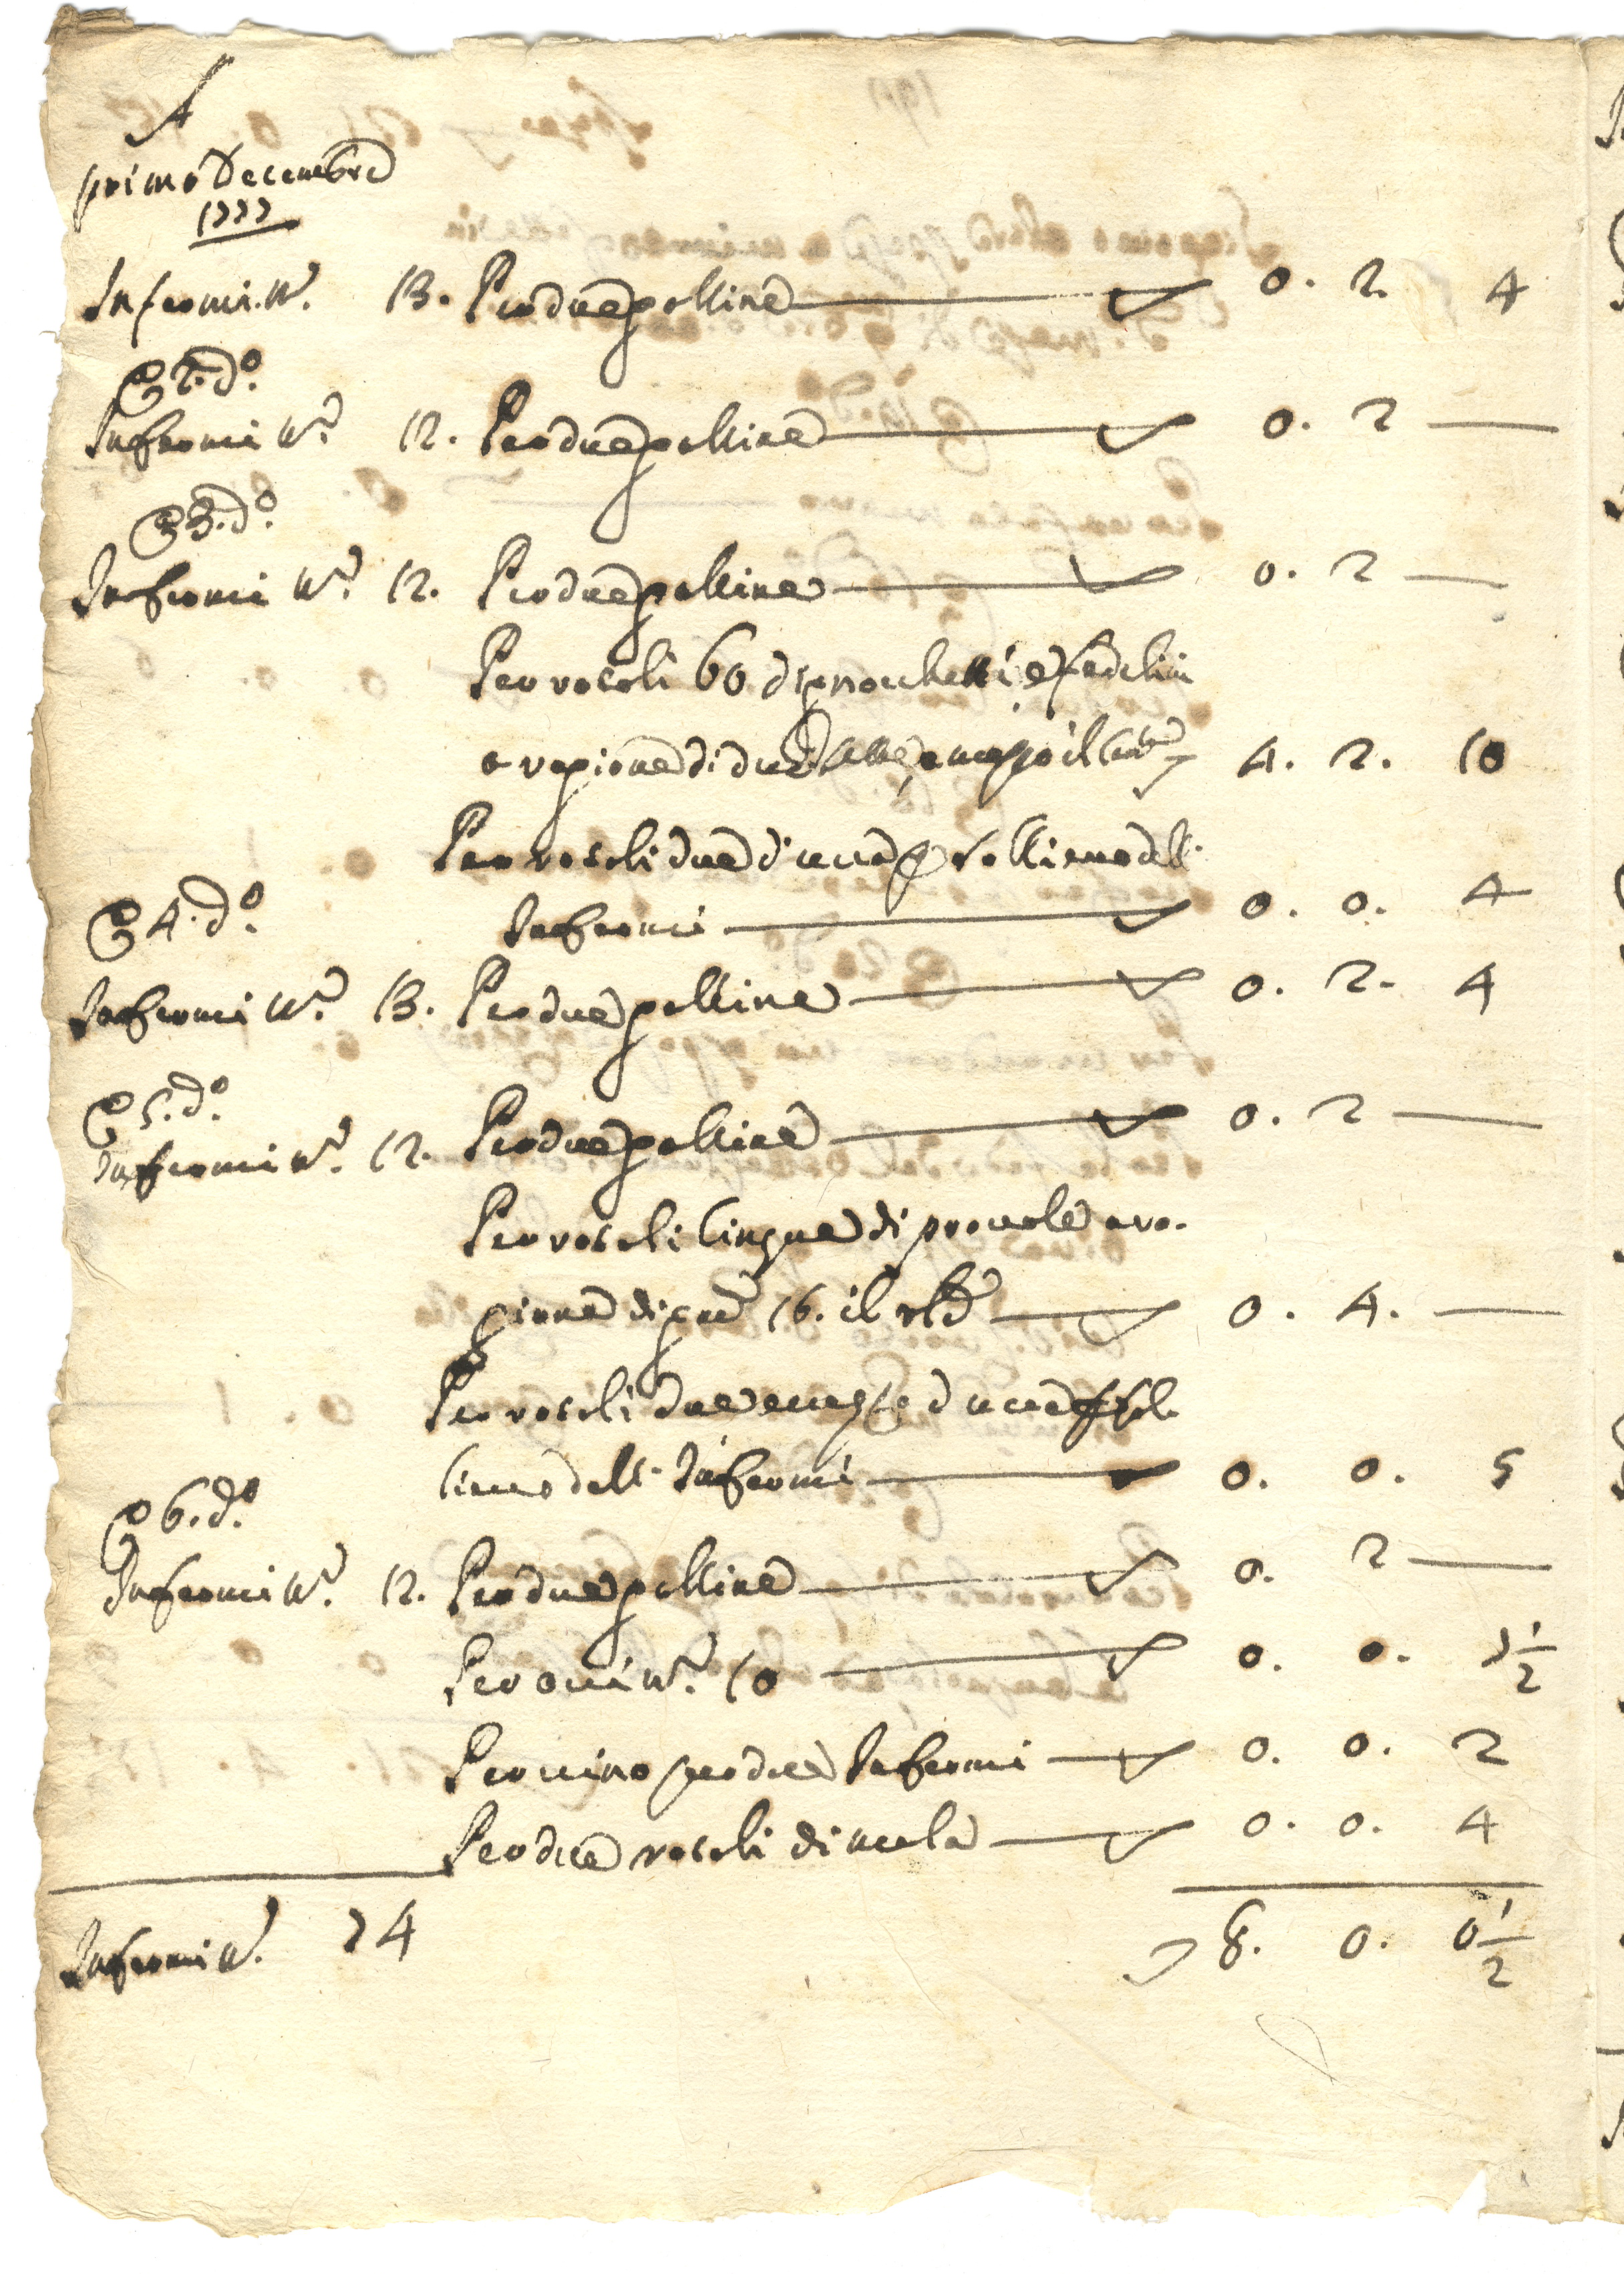 A
primo Decembre
1777
Infermi N.º 13. Per due galline 0. 2. 4
E 2. dº.
Infermi N.º 12. Per due galline 0. 2 —
E 3. dº.
Infermi N.º 12. Per due galline 0. 2 —
Per rotoli 60 di gnocchetti, e fedelini
a ragione di due e mezzo il 4. 2. 10
Per rotoli due d'uva p sollievo delli
Infermi 0. 0. 4
E 4. dº
Infermi N.º 13. Per due galline 0. 2. 4
E 5. dº.
Infermi N.º 12. Per due galline 0. 2 —
Per rotoli cinque di provole a ra-
gione di 16. il 0. 4. —
Per rotoli due e mezzo d'uva p sol-
lievo delli Infermi 0. 0. 5
E 6. dº.
Infermi N.º 12. Per due galline 0. 2 —
Per ovi N.º 10 0. 0. 7 1/2
Per vino per due Infermi 0. 0. 2
Per due rotoli di mela 0. 0. 4
Infermi N.º 74 8. 0. 0 1/2